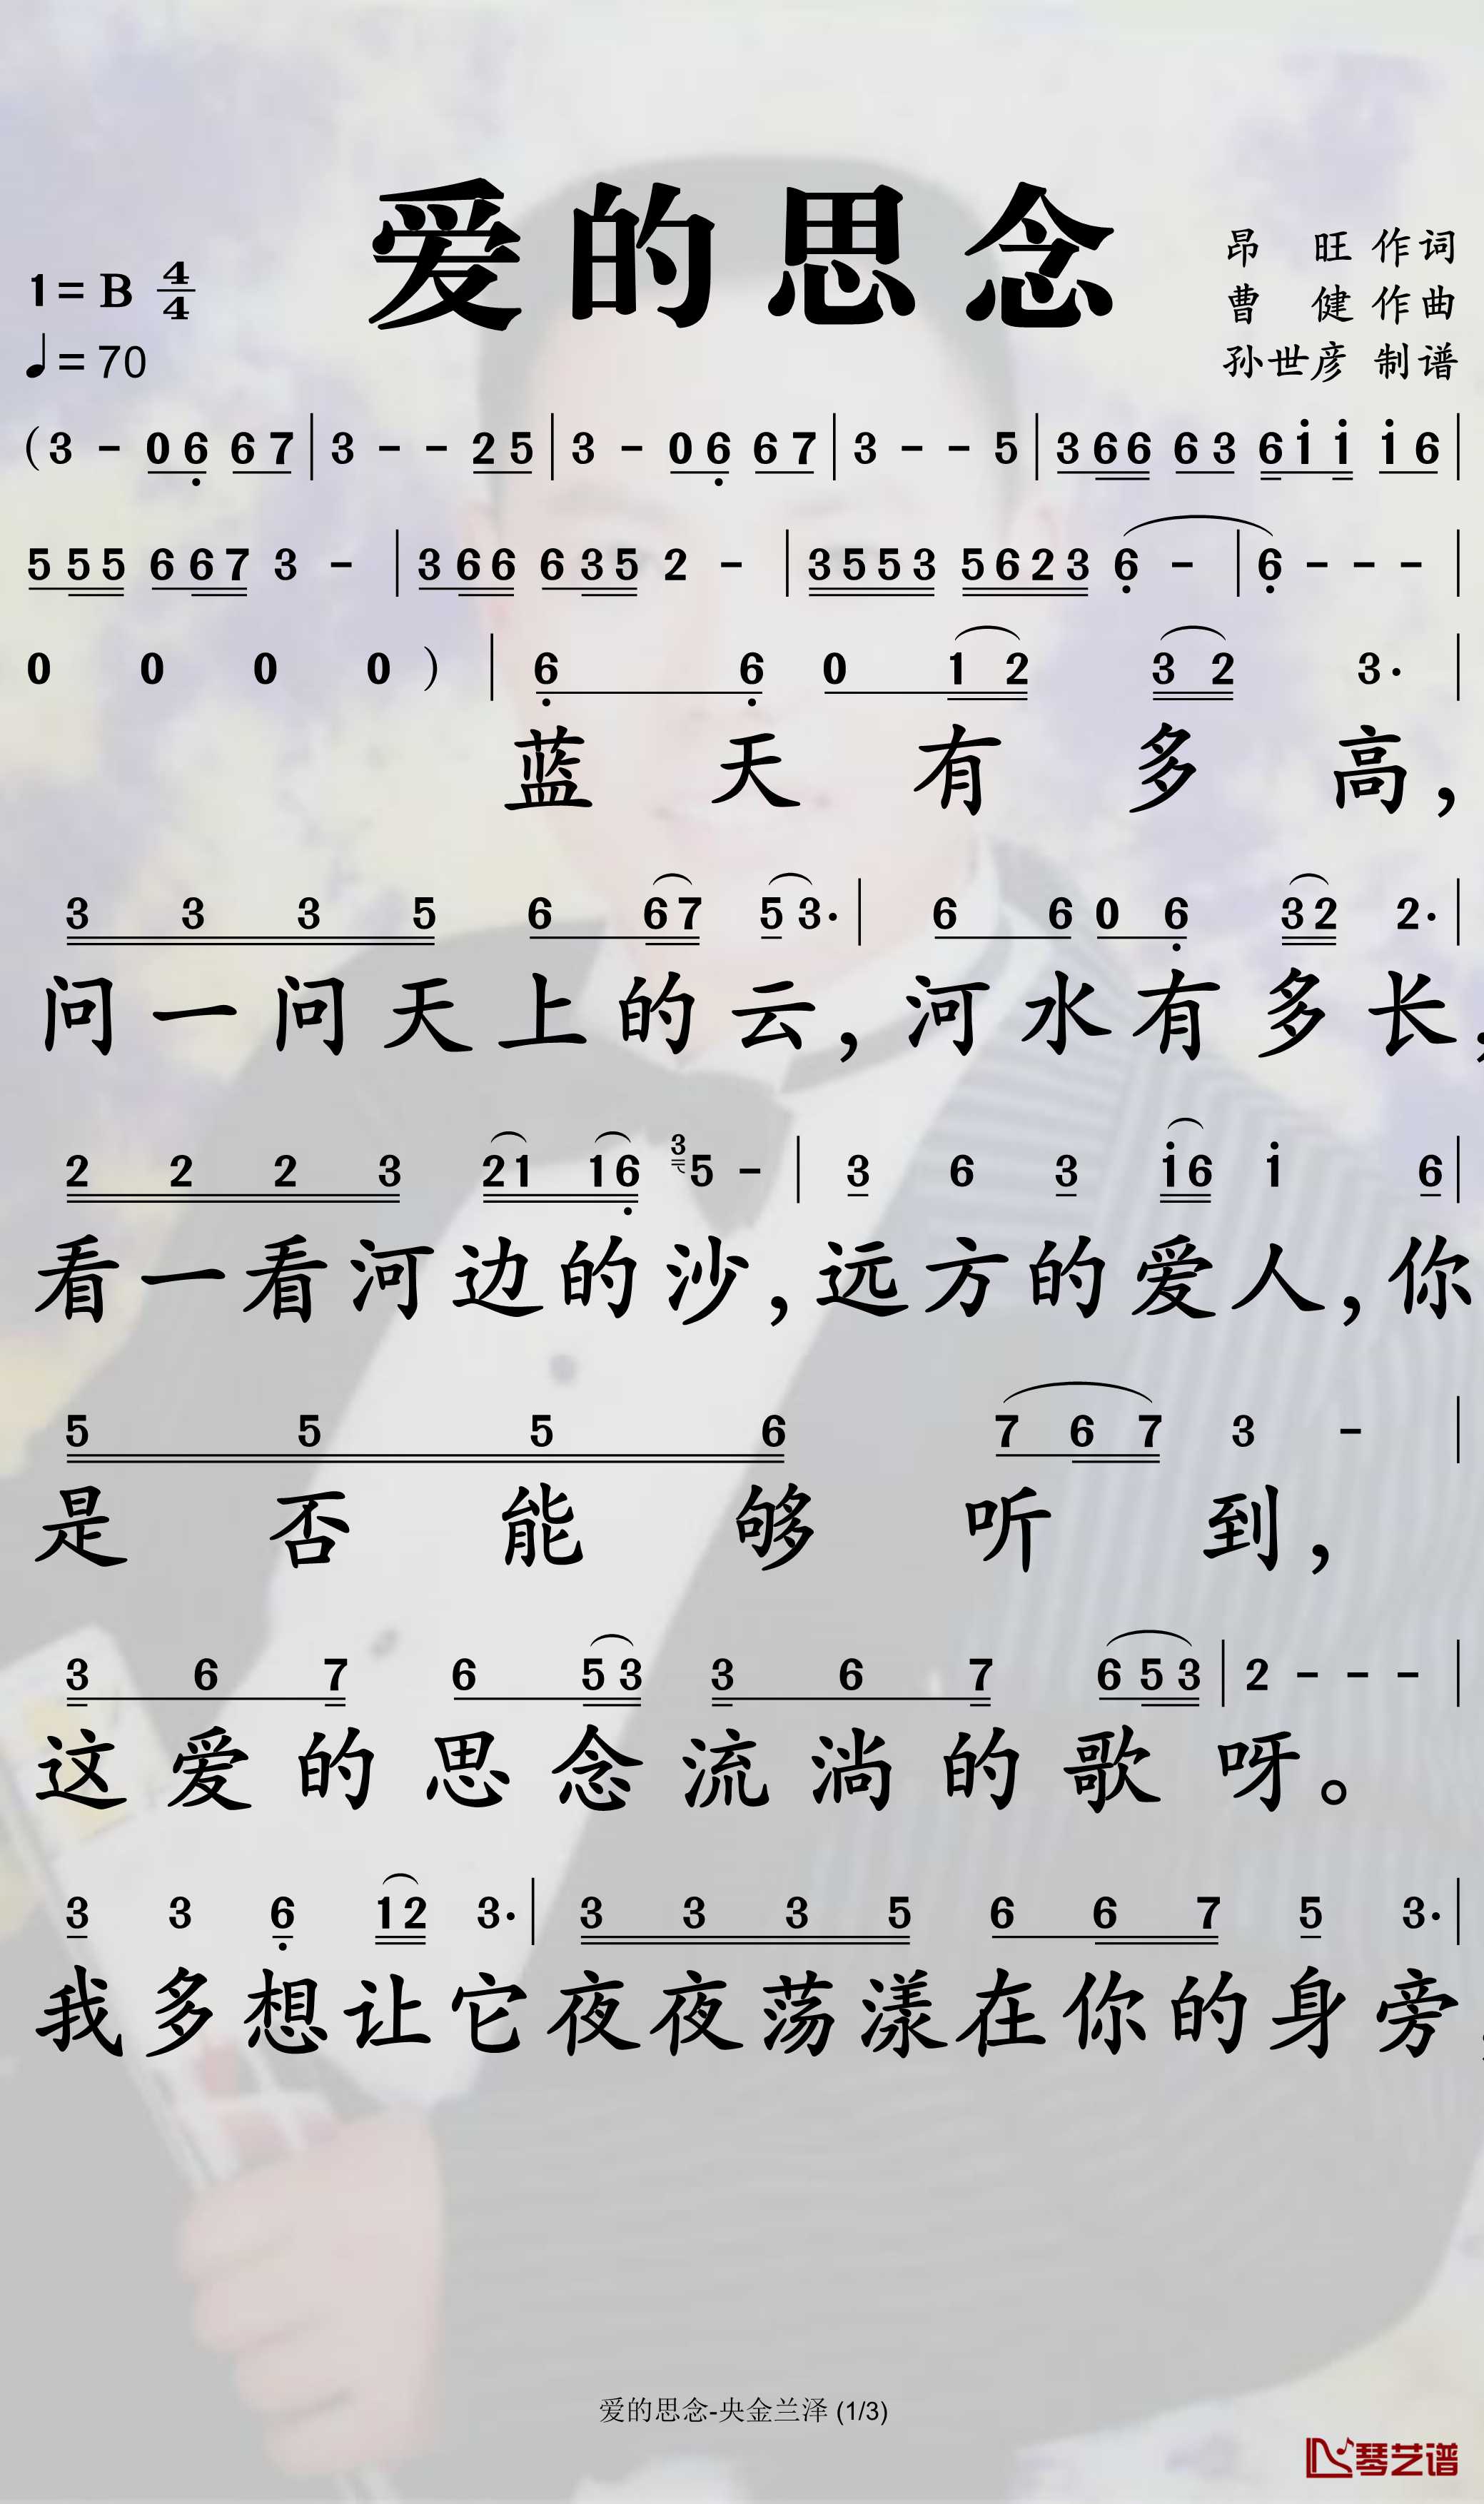 爱的思念
1=B 4/4
♩=70
昂 旺 作词
曹 健 作曲
孙世彦 制谱
(3 - 0 6̣ 6 7 | 3 - - 2 5 | 3 - 0 6̣ 6 7 | 3 - - 5 | 3 6 6 6 3 6 i i i 6 |
5 5 5 6 6 7 3 - | 3 6 6 6 3 5 2 - | 3 5 5 3 5 6 2 3 6̣ - | 6̣ - - - |
0 0 0 0 ) | 6̣ 6̣ 0 1 2 3 2 3. |
蓝天有多高，
3 3 3 5 6 6 7 5 3. | 6 6 0 6̣ 3 2 2. |
问一问天上的云，河水有多长，
2 2 2 3 2 1 1 6̣ 3 5 - | 3 6 3 i 6 i 6 |
看一看河边的沙，远方的爱人，你
5 5 5 6 7 6 7 3 - |
是否能够听到，
3 6 7 6 5 3 3 6 7 6 5 3 | 2 - - - |
这爱的思念流淌的歌呀。
3 3 6̣ 1 2 3. | 3 3 3 5 6 6 7 5 3. |
我多想让它夜夜荡漾在你的身旁，
爱的思念-央金兰泽 (1/3)
琴艺谱